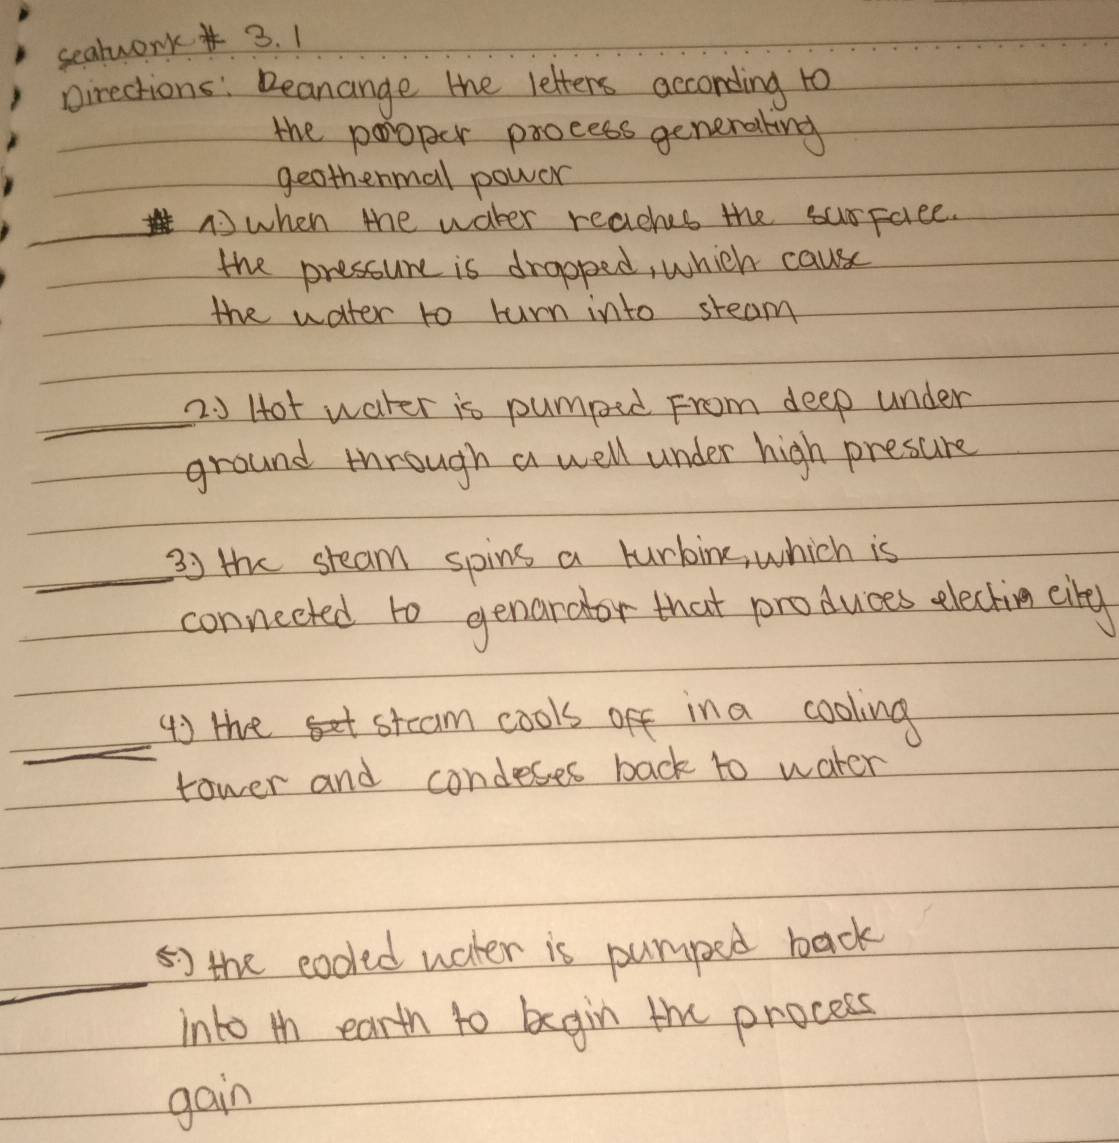 seatwork # 3.1
Directions: Reanange the letters according to
the prooper process generating
geothermal power
1.) when the water reaches the surface.
the pressure is dropped, which cause
the water to turn into steam
2.) Hot water is pumped From deep under
ground through a well under high presure
3.) the steam spins a turbine, which is
connected to genarator that produces electin city
4.) the steam cools off in a cooling
tower and condeses back to water
5.) the cooled water is pumped back
into th earth to begin the process
gain